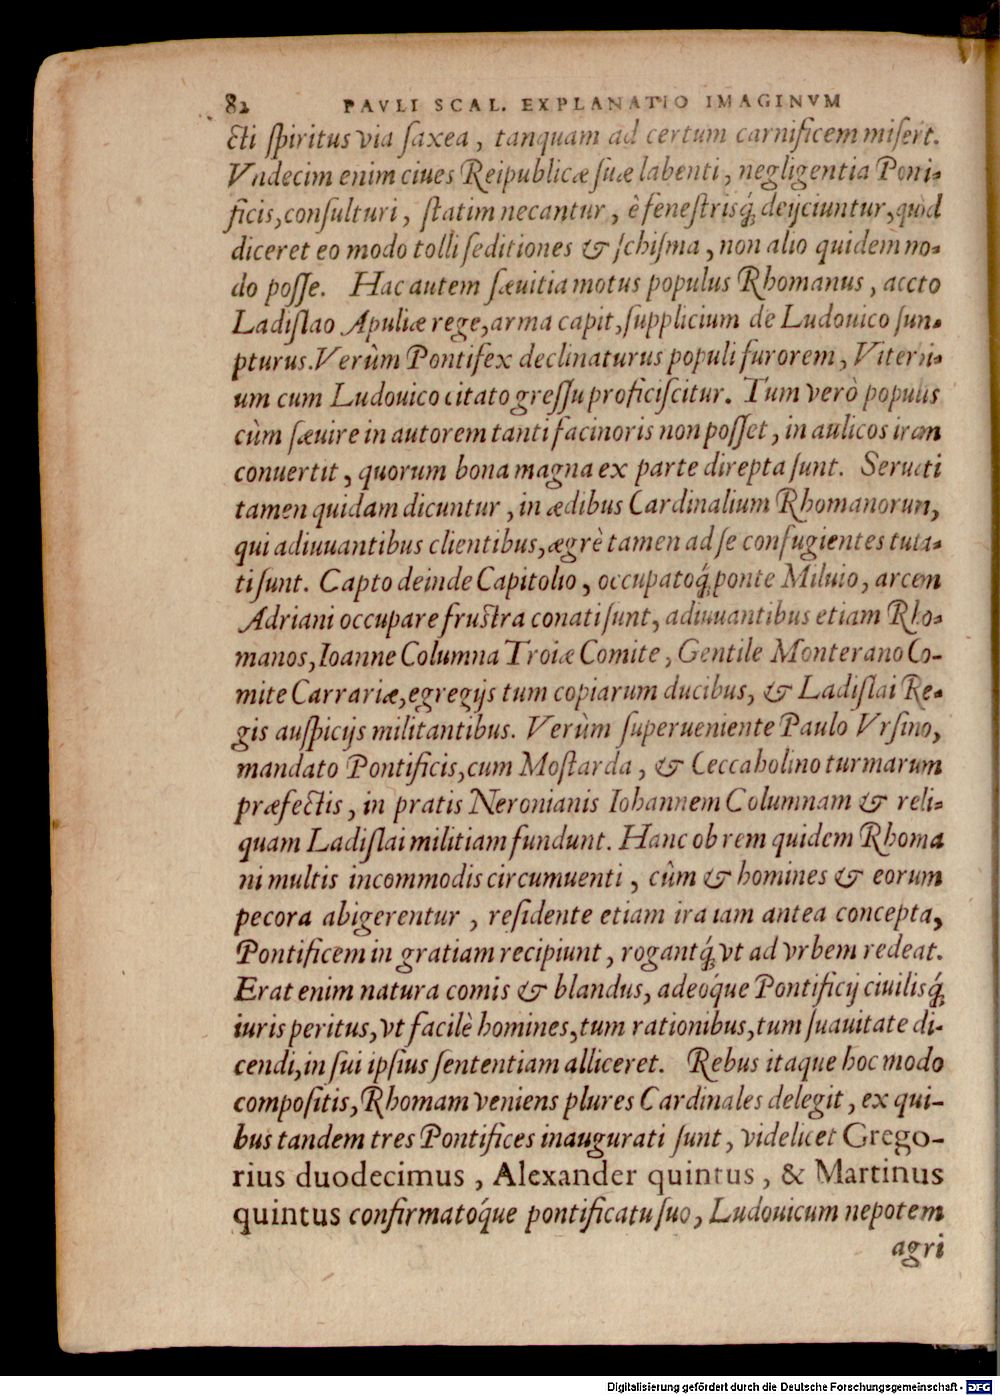 82 PAVLI SCAL. EXPLANATIO IMAGINVM
cti spiritus via saxea, tanquam ad certum carnificem misert.
Vndecim enim ciues Reipublicæ suæ labenti, negligentia Ponti-
ficis, consulturi, statim necantur, è fenestrisq́; deijciuntur, quòd
diceret eo modo tolli seditiones & schisma, non alio quidem mo-
do posse. Hac autem sæuitia motus populus Rhomanus, accto
Ladislao Apuliæ rege, arma capit, supplicium de Ludouico sum-
pturus. Verùm Pontifex declinaturus populi furorem, Viterbi-
um cum Ludouico citato gressu proficiscitur. Tum verò populus
cùm sæuire in autorem tanti facinoris non posset, in aulicos iram
conuertit, quorum bona magna ex parte direpta sunt. Seruati
tamen quidam dicuntur, in ædibus Cardinalium Rhomanorum,
qui adiuuantibus clientibus, ægrè tamen ad se confugientes tuta-
ti sunt. Capto deinde Capitolio, occupatoq́; ponte Miluio, arcem
Adriani occupare frustra conati sunt, adiuuantibus etiam Rho-
manos, Ioanne Columna Troiæ Comite, Gentile Monterano Co-
mite Carrariæ, egregijs tum copiarum ducibus, & Ladislai Re-
gis auspicijs militantibus. Verùm superueniente Paulo Vrsino,
mandato Pontificis, cum Mostarda, & Ceccaholino turmarum
præfectis, in pratis Neronianis Iohannem Columnam & reli-
quam Ladislai militiam fundunt. Hanc ob rem quidem Rhoma
ni multis incommodis circumuenti, cûm & homines & eorum
pecora abigerentur, residente etiam ira iam antea concepta,
Pontificem in gratiam recipiunt, rogantq́; vt ad vrbem redeat.
Erat enim natura comis & blandus, adeóque Pontificij ciuilisq́;
iuris peritus, vt facilè homines, tum rationibus, tum suauitate di-
cendi, in sui ipsius sententiam alliceret. Rebus itaque hoc modo
compositis, Rhomam veniens plures Cardinales delegit, ex qui-
bus tandem tres Pontifices inaugurati sunt, videlicet Grego-
rius duodecimus, Alexander quintus, & Martinus
quintus confirmatóque pontificatu suo, Ludouicum nepotem
agri
Digitalisierung gefördert durch die Deutsche Forschungsgemeinschaft - DFG